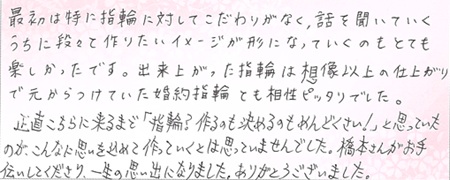 最初は特に指輪に対してこだわりがなく、話を聞いていく
うちに段々と作りたいイメージが形になっていくのもとても
楽しかったです。出来上がった指輪は想像以上の仕上がり
で元からつけていた婚約指輪とも相性ピッタリでした。
正直こちらに来るまで「指輪？作るのも決めるのもめんどくさい！」と思っていた
のが、こんなに思いを込めて作っていくとは思っていませんでした。橋本さんがお手
伝いしてくださり、一生の思い出になりました。ありがとうございました。